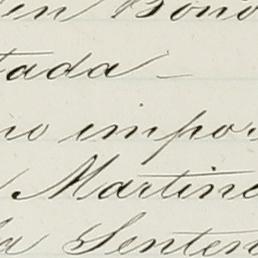 en Bono
tada -
no impo
Martine
la Senten